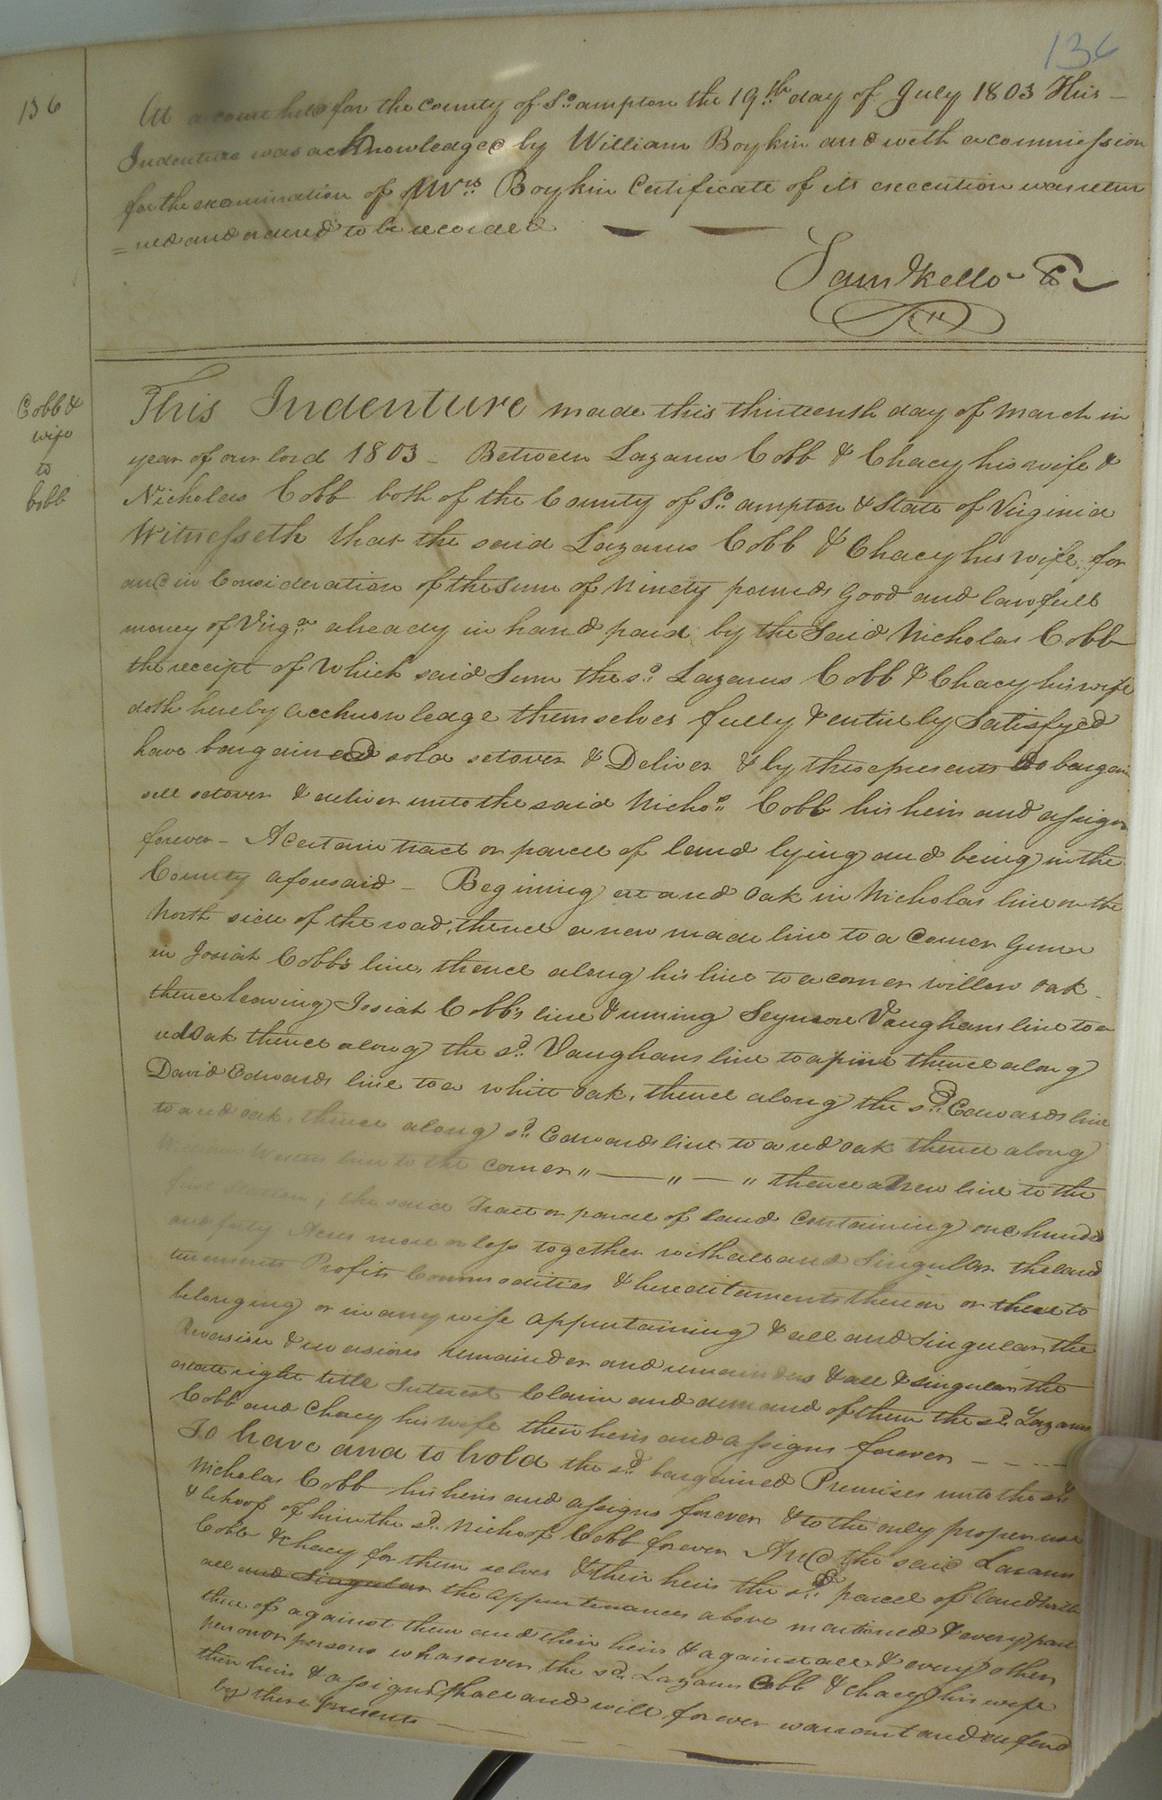 136
136
At a court held for the county of So.ampton the 19th day of July 1803 This
Indenture was acknowledged by William Boykin and with a commission
for the examination of Mrs. Boykin Certificate of its execution was retur
=ned and ordered to be recorded
Saml Kello
Cobb &
wife
to
Cobb
This Indenture made this thirteenth day of March in
year of our lord 1803 - Between Lazarus Cobb & Chacy his wife &
Nicholas Cobb both of the County of So. ampton & State of Virginia
Witnesseth that the said Lazarus Cobb & Chacy his wife, for
and in Consideration of the Sum of Ninety pounds Good and lawfull
money of Virga. already in hand paid by the Said Nicholas Cobb
the receipt of Which said Sum the sd. Lazarus Cobb & Chacy his wife
doth hereby acchnowledge themselves fully & entirely Satisfyed
have bargained sold setover & Deliver & by these presents do bargain
sell setover & deliver unto the said Nichos. Cobb his heirs and assigns
forever - A Certain tract or parcel of land lying and being in the
County aforesaid - Begining at a red oak in Nicholas line on the
North side of the road, thence a new made line to a Corner Gum
in Josiah Cobb's line, thence along his line to a corner willow oak
thence leaving Josiah Cobb's line & runing Seymore Vaughans line to a
red Oak thence along the sd. Vaughans line to a pine thence along
David Edwards line to a white oak, thence along the sd. Edwards line
to a red oak, thence along sd. Edwards line to a red oak thence along
line to the corner " — " — " thence a New line to the
first station, the said Tract or parcel of Land Containing one hundred
and forty Acres more or less together with all and Singular the land
tenements Profits Commodities & hereditaments therein or thereto
belonging or in any wise appurtaining & all and Singular the
Reversion & reversions remainder and remainders & all & singular the
estate right title Interest Claim and demand of them the sd. Lazarus
Cobb and Chacy his wife their heirs and assigns forever - - - -
To have and to hold the sd. bargained Premises unto the sd.
Nicholas Cobb his heirs and assigns forever & to the only proper use
& behoof of him the sd. Nichos. Cobb forever And the said Lazarus
Cobb & Chacy for them selves & their heirs the sd. parcel of land with
all and Singular the appurtenances above mentioned & every part
there of against them and their heirs & against all & every other
person or persons whasoever the sd. Lazarus Cobb & Chacy his wife
their heirs & assigns shall and will for ever warrant and defend
by these presents